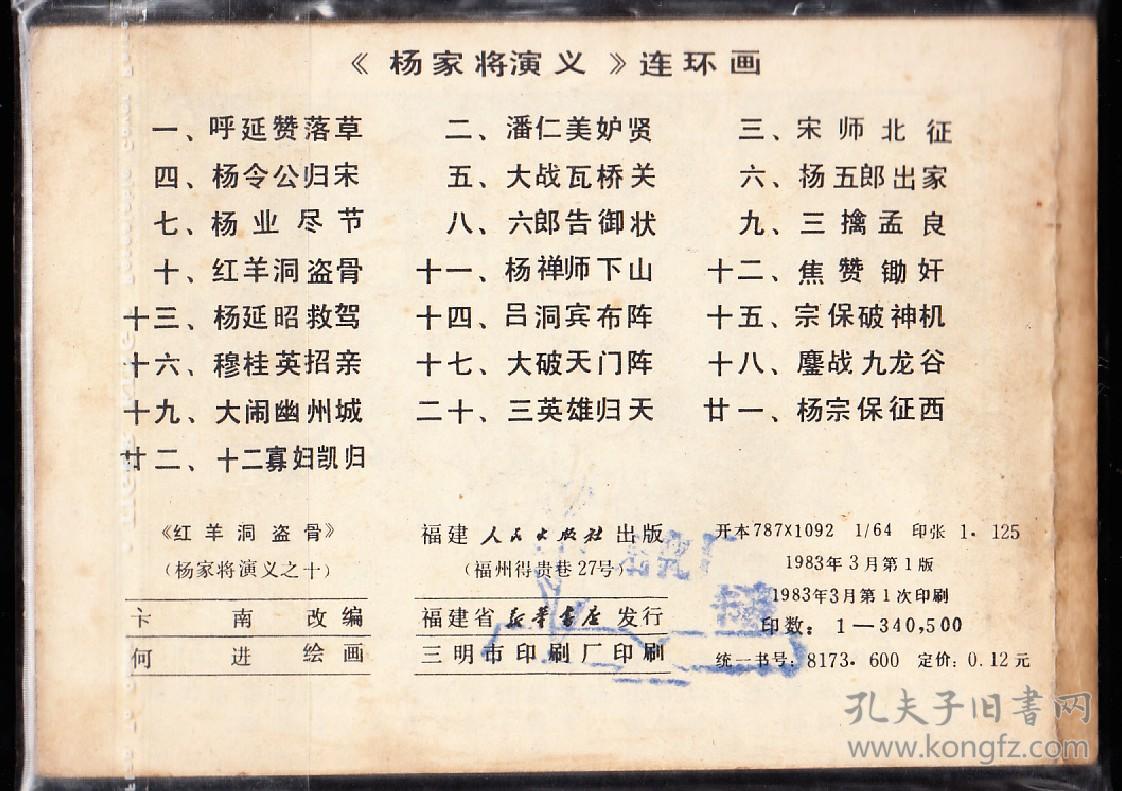 《杨家将演义》连环画
一、呼延赞落草 二、潘仁美妒贤 三、宋师北征
四、杨令公归宋 五、大战瓦桥关 六、扬五郎出家
七、杨业尽节 八、六郎告御状 九、三擒孟良
十、红羊洞盗骨 十一、杨禅师下山 十二、焦赞锄奸
十三、杨延昭救驾 十四、吕洞宾布阵 十五、宗保破神机
十六、穆桂英招亲 十七、大破天门阵 十八、鏖战九龙谷
十九、大闹幽州城 二十、三英雄归天 廿一、杨宗保征西
廿二、十二寡妇凯归
《红羊洞盗骨》
(杨家将演义之十)
卞南改编
何进绘画
福建人民出版社出版
(福州得贵巷27号)
福建省新华书店发行
三明市印刷厂印刷
开本787X1092 1/64 印张1.125
1983年3月第1版
1983年3月第1次印刷
印数:1—340,500
统一书号:8173.600 定价:0.12元
孔夫子旧书网
www.kongfz.com